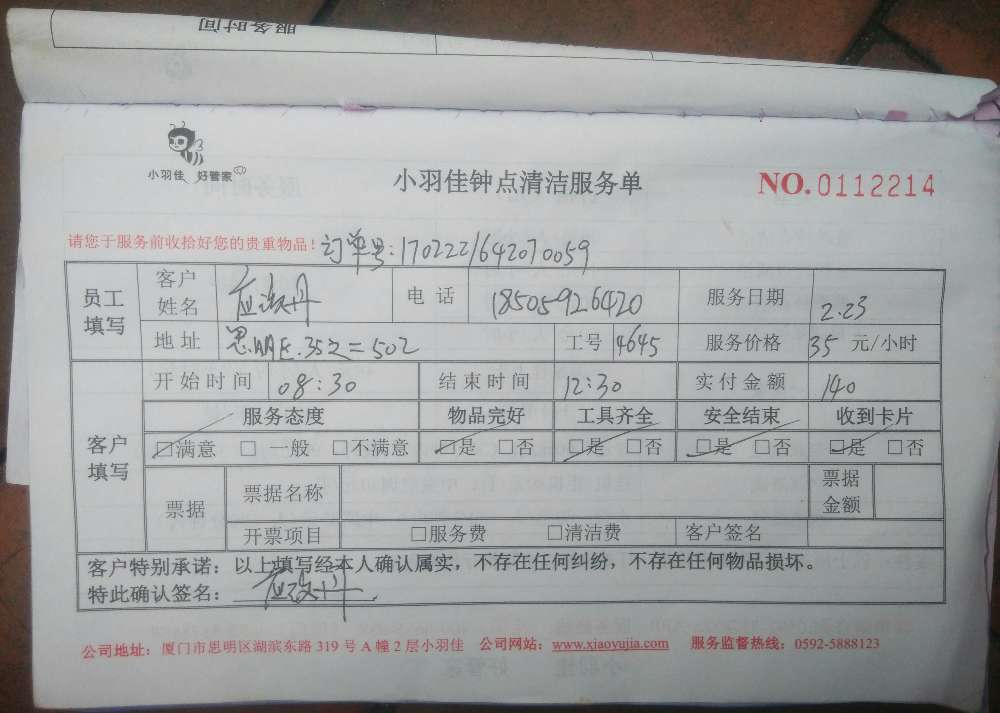 服务时间
小羽佳 好管家
小羽佳钟点清洁服务单
NO.0112214
请您于服务前收拾好您的贵重物品！ 订单号:1702221642070059
员工填写 客户姓名 电话 18505926420 服务日期 2.23
地址 思明区 502 工号 4645 服务价格 35 元/小时
客户填写 开始时间 08:30 结束时间 12:30 实付金额 140
服务态度 物品完好 工具齐全 安全结束 收到卡片
☑满意 □一般 □不满意 ☑是 □否 ☑是 □否 ☑是 □否 ☑是 □否
票据 票据名称 票据金额
开票项目 □服务费 □清洁费 客户签名
客户特别承诺：以上填写经本人确认属实，不存在任何纠纷，不存在任何物品损坏。
特此确认签名：
公司地址：厦门市思明区湖滨东路 319 号 A 幢 2 层小羽佳 公司网站：www.xiaoyujia.com 服务监督热线：0592-5888123